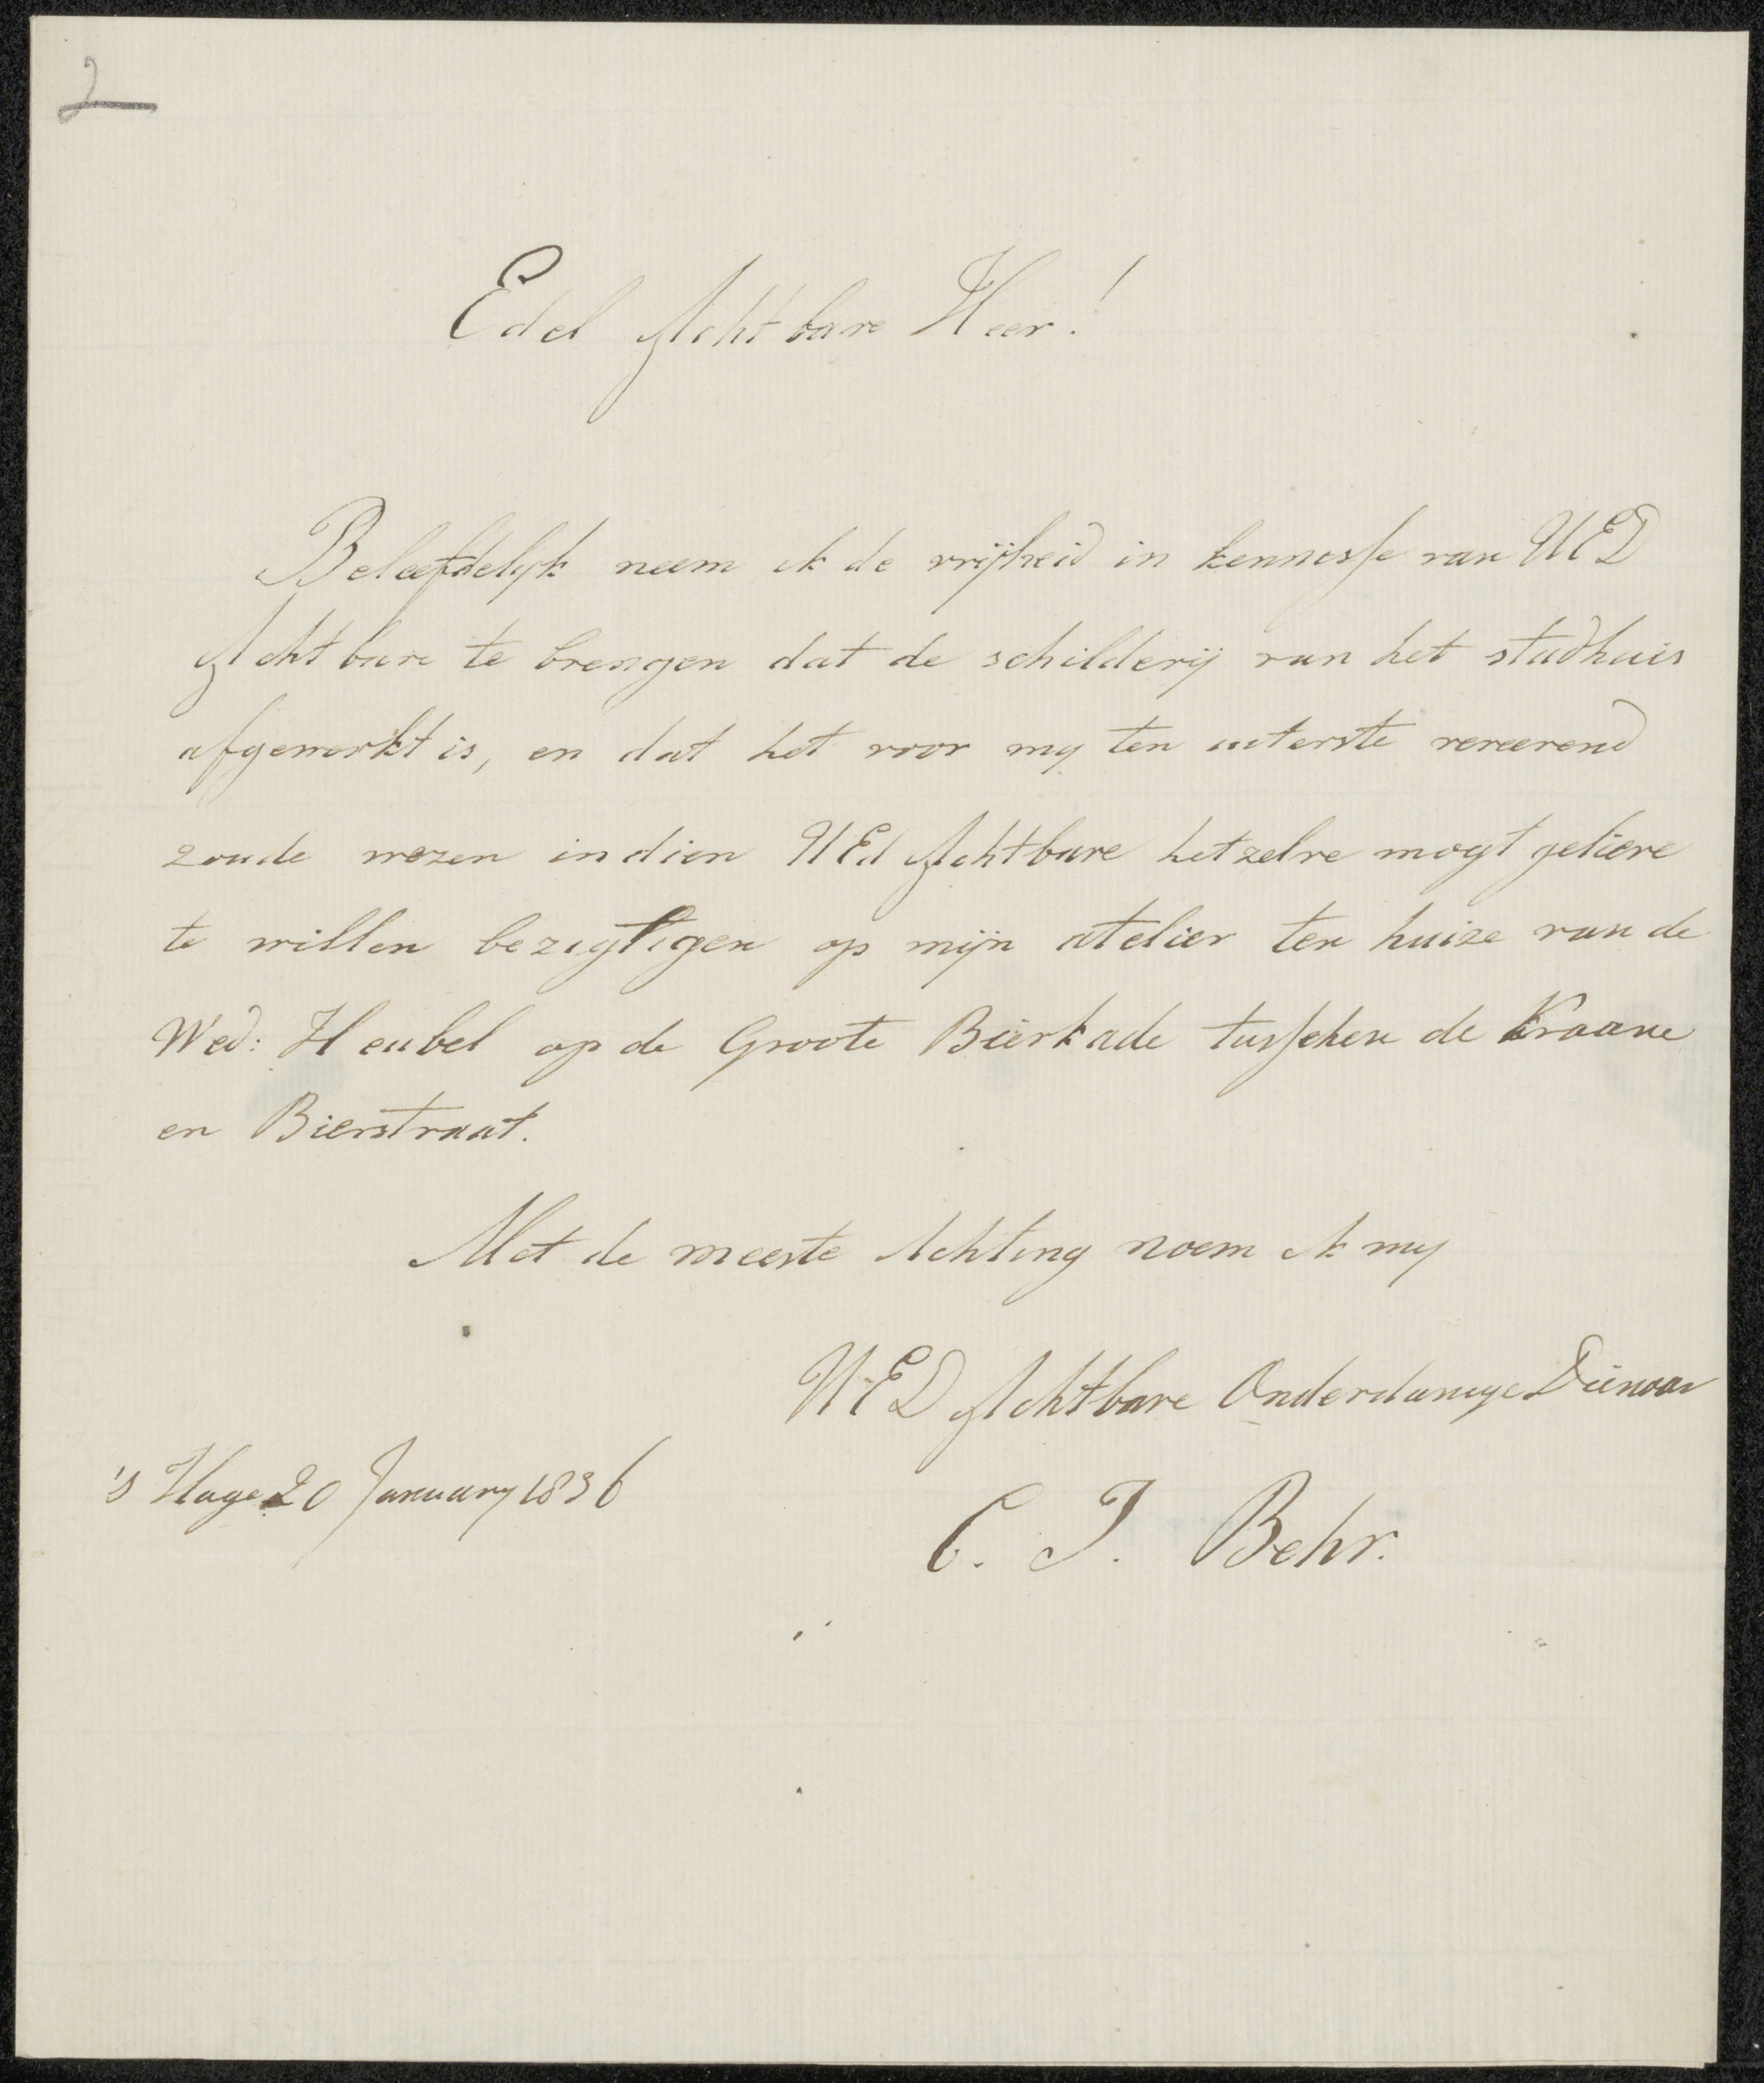 2
Edel Achtbare Heer!
Beleefdelijk neem ik de vrijheid in kennisse van UED
Achtbare te brengen dat de schilderij van het stadhuis
afgewerkt is, en dat het voor my ten uiterste vereerend
zoude wezen indien UEd Achtbare hetzelve mogt gelieve
te willen bezigtigen op mijn atelier ten huize van de
Wed: Heubel op de Groote Bierkade tusschen de Kraane
en Bierstraat.
Met de meeste Achting noem ik my
UED Achtbare Onderdanige Dienaar
's Hage 20 January 1836
C. J. Behr.